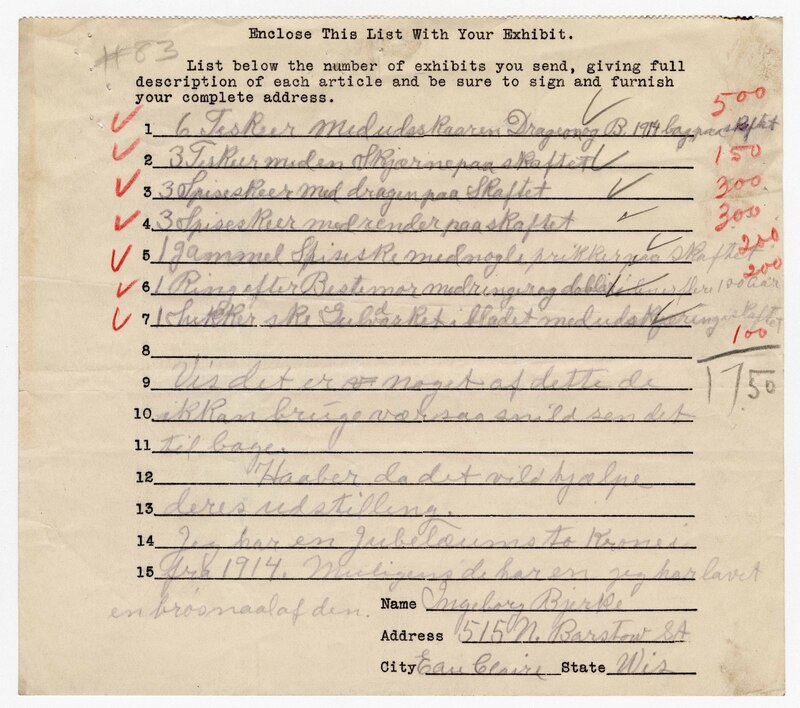 Enclose This List With Your Exhibit.
#83
List below the number of exhibits you send, giving full
description of each article and be sure to sign and furnish
your complete address.
1 6 Teskeer med udsskaaren Drage og B. 1914 bag paa skaftet 500
2 3 Teskeer med en Stjerne paa skaftet 150
3 3 Spiseskeer med dragen paa Skaftet 300
4 3 Spiseskeer med render paa skaftet 300
5 1 gammel Spiseske med nogle prikker paa skaftet 200
6 1 Ring efter Bestemor med ringer og 200
7 1 Sukker ske Guld i bladet med 100
8
9 Vis det er noget af dette de
10 ik kan bruge vær saa snild send det
11 til bage.
12 Haaber da det vild hjælpe
13 deres udstilling.
14 Jeg har en Jubelæums to Krone
15 fra 1914. Muligens de har en jeg har lavet
en brosnaal af den.
1750
Name Ingeborg Bjerke
Address 515 N. Barstow St
City Eau Claire State Wis